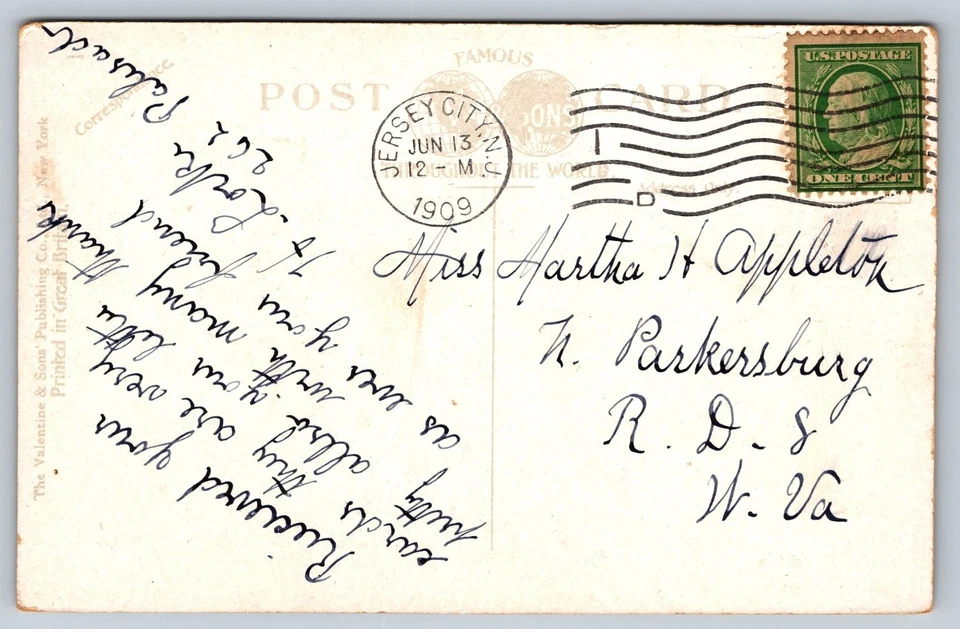 POST CARD
FAMOUS
THROUGHOUT THE WORLD
Correspondence
Address Only.
The Valentine & Sons' Publishing Co., New York
Printed in Great Britain.
JERSEY CITY, N.J.
JUN 13
12 - M.
1909
D
U.S. POSTAGE
ONE CENT
Miss Martha H Appleton
N. Parkersburg
R. D. 8
W. Va
Received your
cards they are very
pretty allso your letter
as ever with many thanks
your friend
262